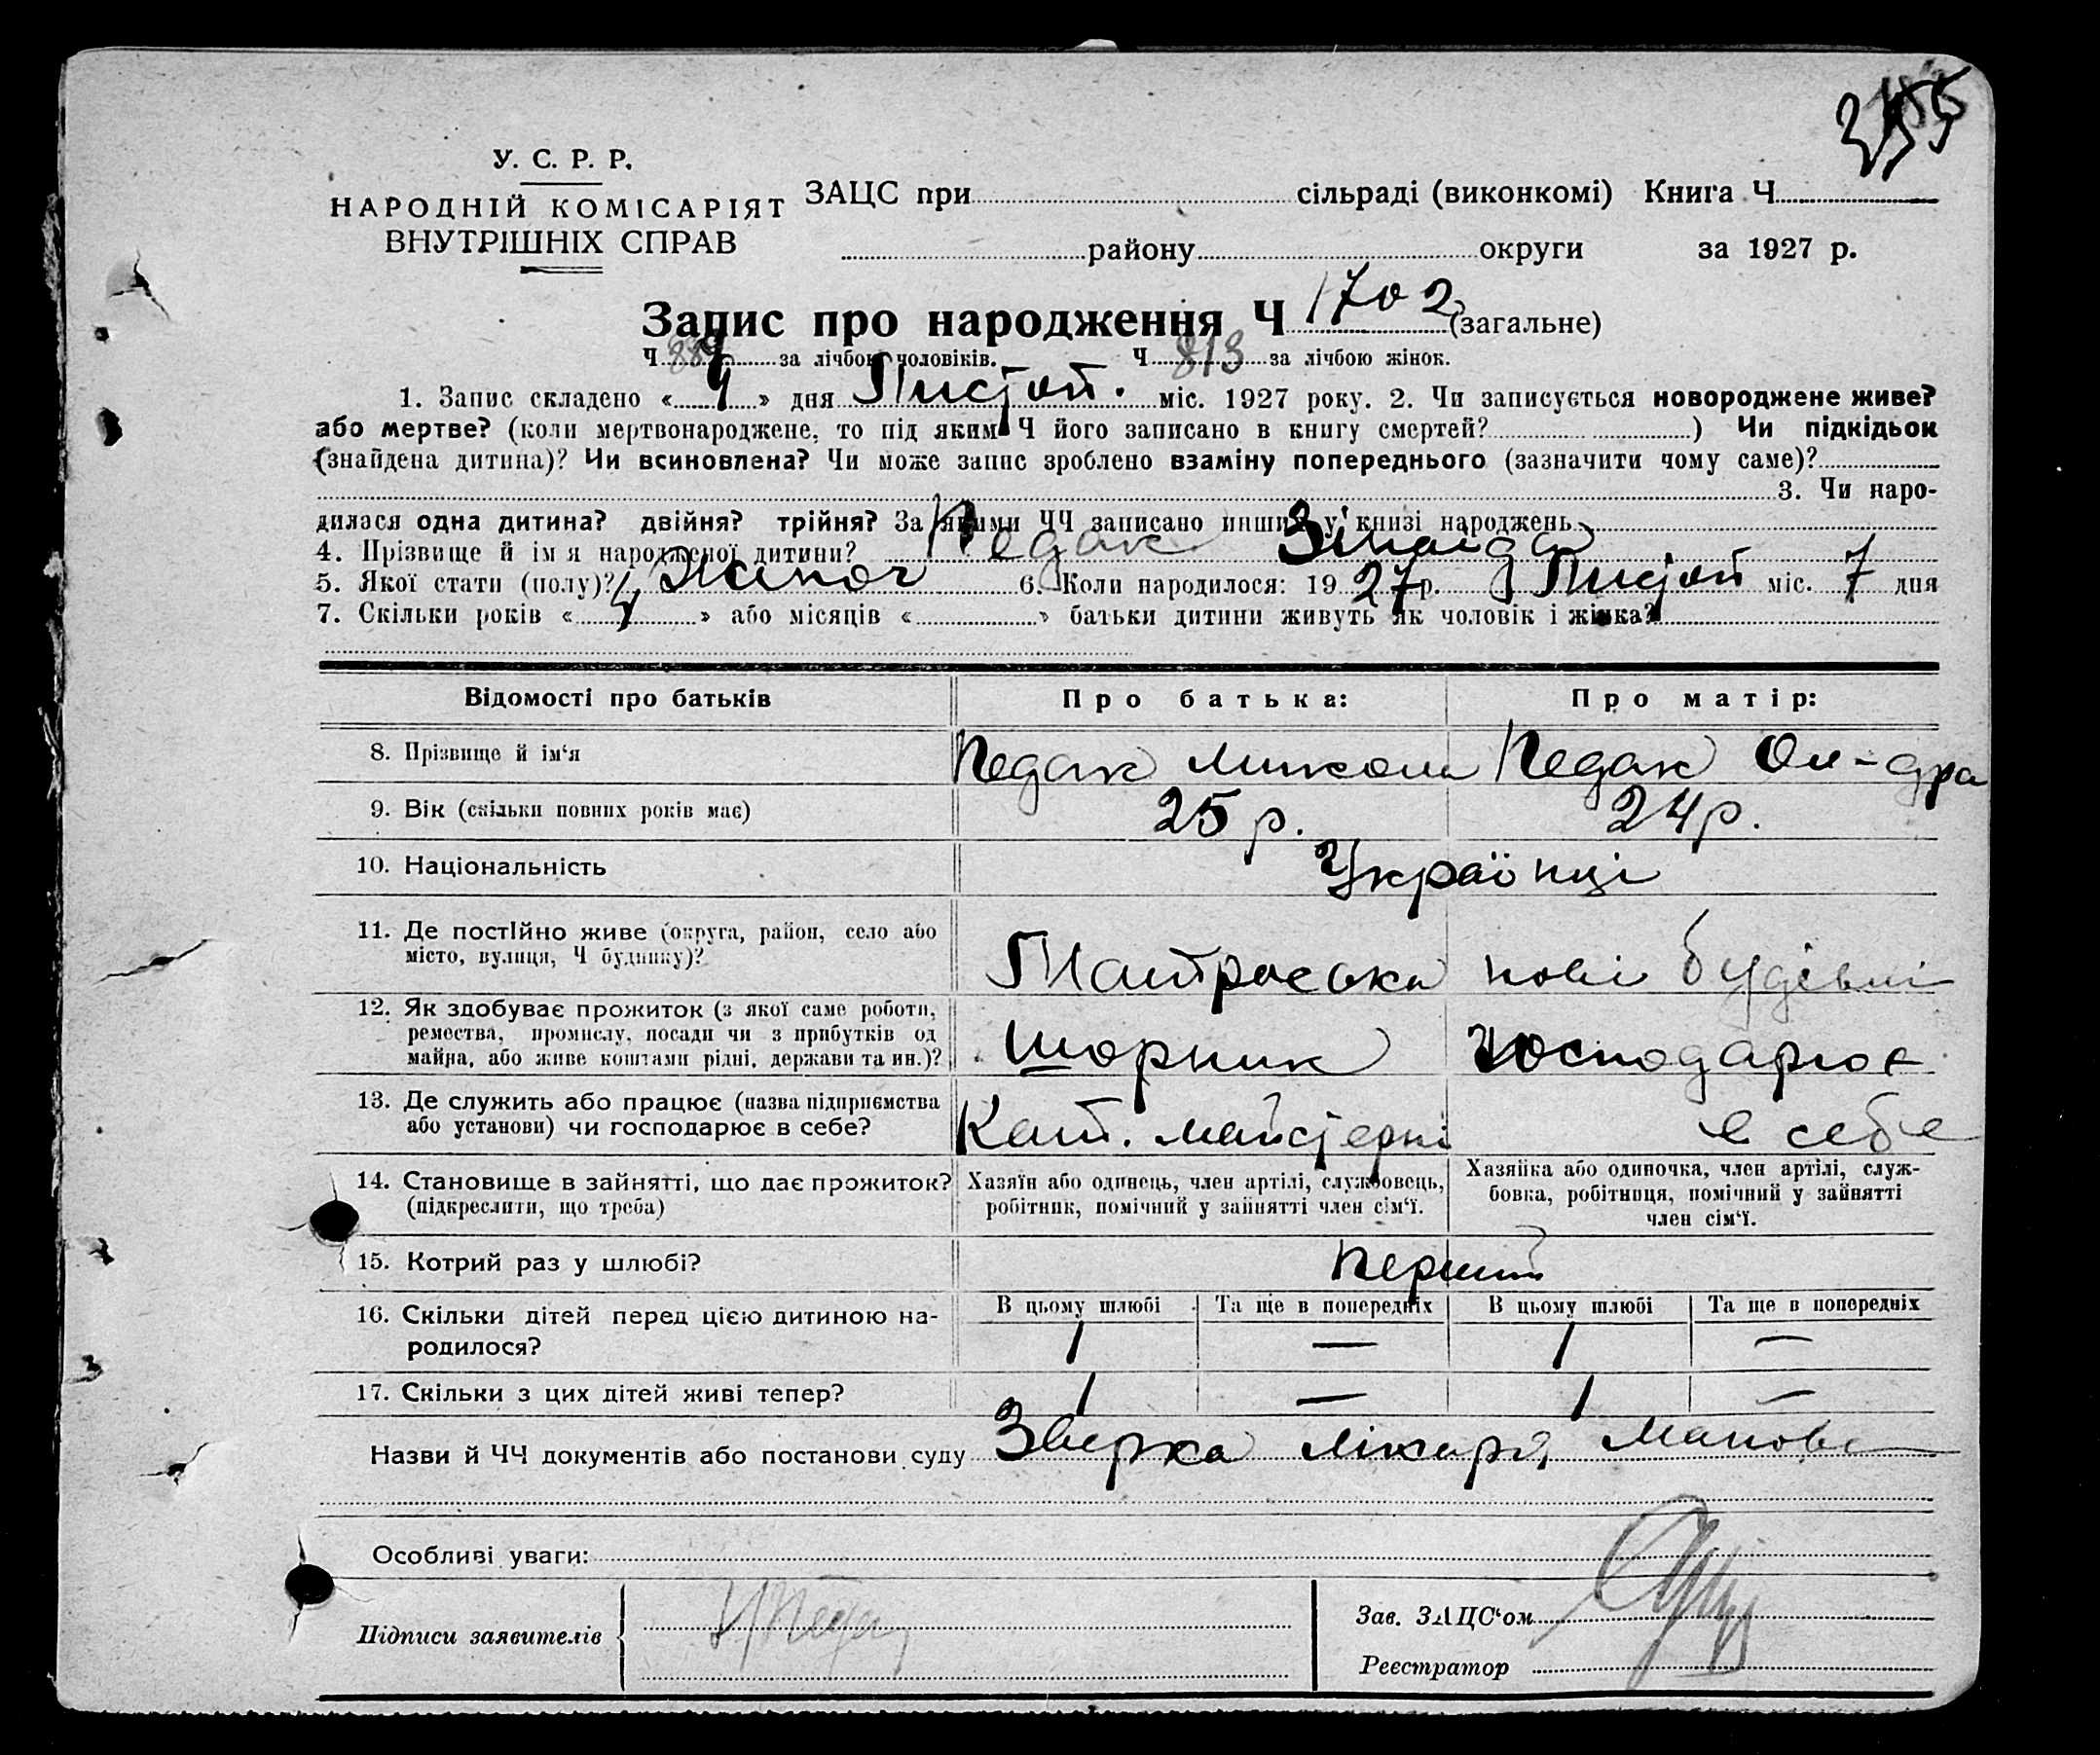 355
У. С. Р. Р.
НАРОДНІЙ КОМІСАРІЯТ
ВНУТРІШНІХ СПРАВ
ЗАЦС при сільраді (виконкомі) Книга Ч
району округи за 1927 р.
Запис про народження Ч 1702 (загальне)
Ч за лічбою чоловіків. Ч 813 за лічбою жінок.
1. Запис складено « » дня Листоп. міс. 1927 року. 2. Чи записується новороджене живе?
або мертве? (коли мертвонароджене, то під яким Ч його записано в книгу смертей? ) Чи підкідьок
(знайдена дитина)? Чи всиновлена? Чи може запис зроблено взаміну попереднього (зазначити чому саме)?
3. Чи наро-
дилася одна дитина? двійня? трійня? За якими ЧЧ записано инших у книзі народжень
4. Прізвище й ім'я народженої дитини? Педак Зінаїда
5. Якої стати (полу)? Жіноч 6. Коли народилося: 1927 р. Листоп міс. 7 дня
7. Скільки років « 4 » або місяців « » батьки дитини живуть як чоловік і жінка?
Відомості про батьків Про батька: Про матір:
8. Прізвище й ім'я Педак Микола Педак Ол-дра
9. Вік (скільки повних років має) 25 р. 24 р.
10. Національність Українці
11. Де постійно живе (округа, район, село або
місто, вулиця, Ч будинку)? Матроська нові будівлі
12. Як здобуває прожиток (з якої саме роботи,
ремества, промислу, посади чи з прибутків од
майна, або живе коштами рідні, держави та ин.)? Шорник Господарює
13. Де служить або працює (назва підприємства
або установи) чи господарює в себе? майстерні в себе
14. Становище в зайнятті, що дає прожиток?
(підкреслити, що треба)
Хазяїн або одинець, член артілі, службовець,
робітник, помічний у зайнятті член сім'ї.
Хазяйка або одиночка, член артілі, служ-
бовка, робітниця, помічний у зайнятті
член сім'ї.
15. Котрий раз у шлюбі? Перший
16. Скільки дітей перед цією дитиною на-
родилося?
В цьому шлюбі Та ще в попередніх В цьому шлюбі Та ще в попередніх
1 — 1 —
17. Скільки з цих дітей живі тепер? 1 — 1 —
Назви й ЧЧ документів або постанови суду лікаря
Особливі уваги:
Підписи заявителів
Зав. ЗАЦС'ом
Реєстратор